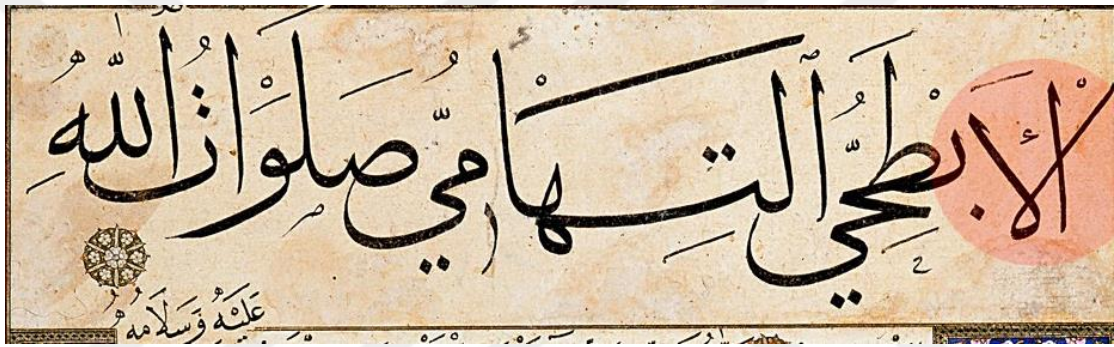 الْأَبْطَحِيُّ ٱلتِّهَامِيُّ صَلَوَاتُ اللّٰهِ
عَلَيْهِ وَسَلَامُهُ